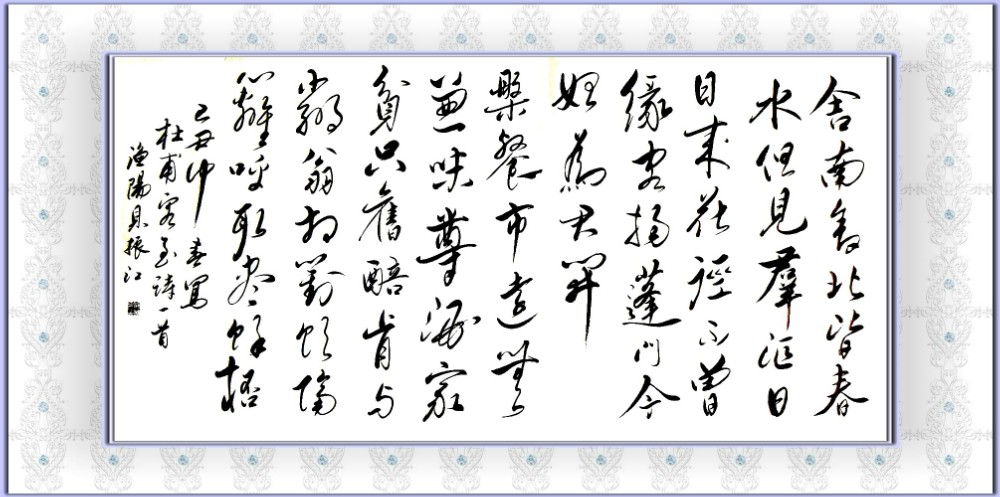 舍南舍北皆春
水但見羣沤日
日来花徑不曾
緣客掃蓬門今
始為君開
槃餐市遠無
兼味尊酒家
貧只舊醅肯与
鄰翁相對飲隔
籬呼取盡餘桮
己丑仲春寫
杜甫客至詩一首
漁陽貝振江